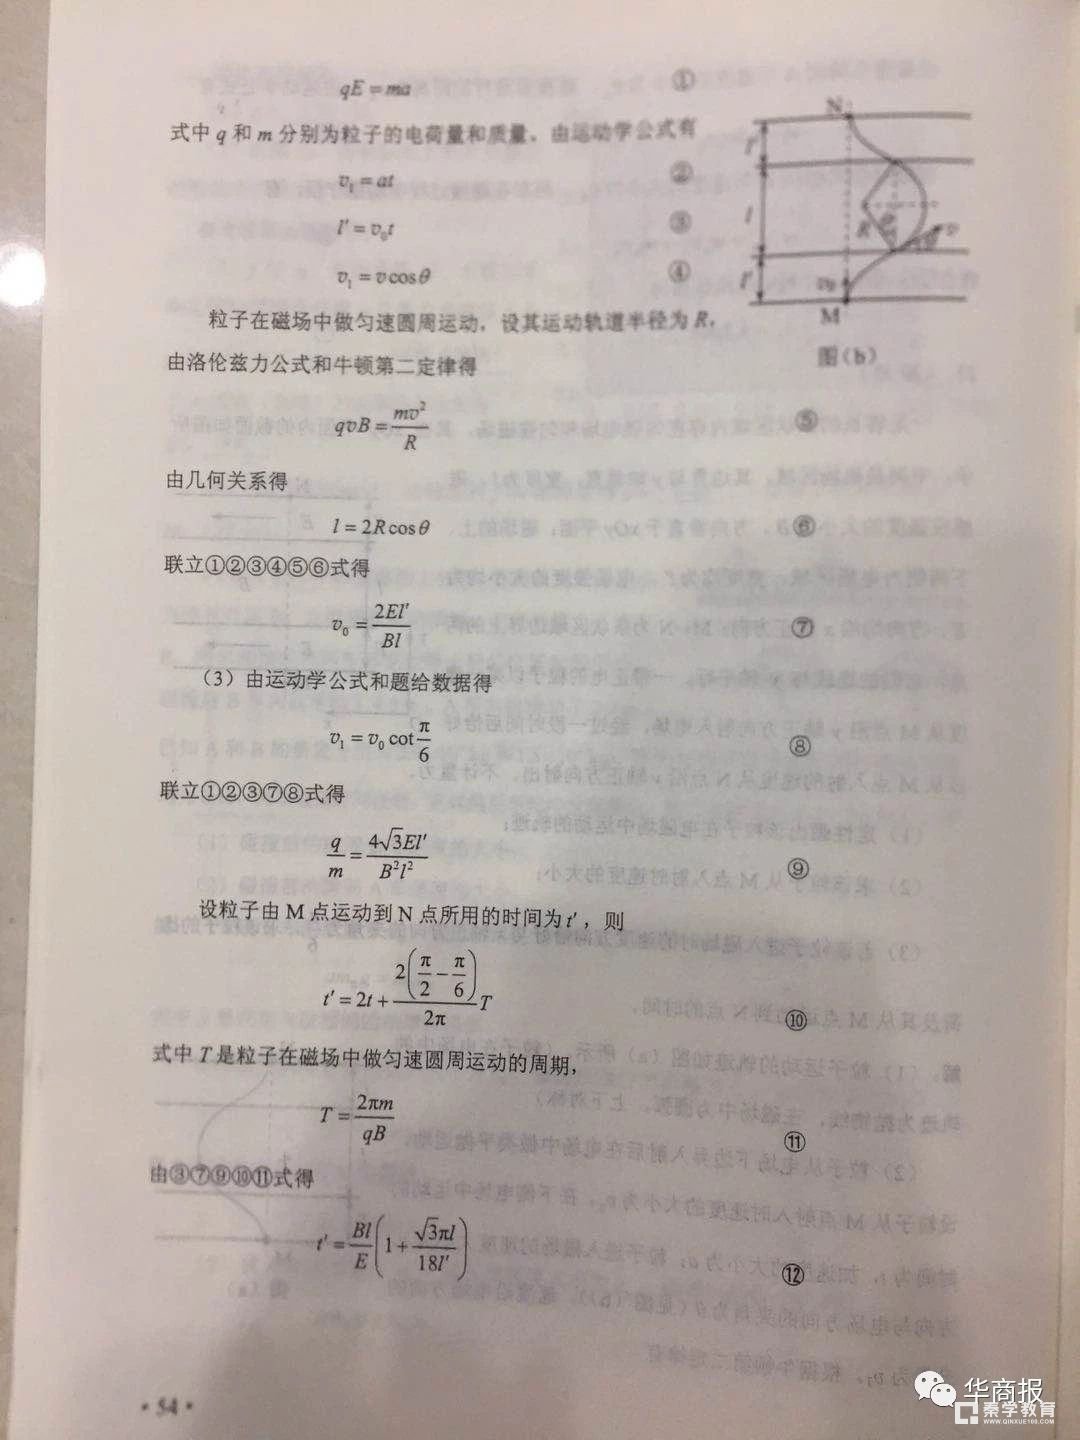 qE = ma ①
式中 q 和 m 分别为粒子的电荷量和质量，由运动学公式有
v₁ = at ②
l′ = v₀t ③
v₁ = v cosθ ④
粒子在磁场中做匀速圆周运动，设其运动轨道半径为 R，
由洛伦兹力公式和牛顿第二定律得
qvB = mv²/R ⑤
由几何关系得
l = 2R cosθ ⑥
联立①②③④⑤⑥式得
v₀ = 2El′/Bl ⑦
（3）由运动学公式和题给数据得
v₁ = v₀ cot π/6 ⑧
联立①②③⑦⑧式得
q/m = 4√3El′/B²l² ⑨
设粒子由 M 点运动到 N 点所用的时间为 t′，则
t′ = 2t + 2(π/2 − π/6)/2π T ⑩
式中 T 是粒子在磁场中做匀速圆周运动的周期，
T = 2πm/qB ⑪
由③⑦⑨⑩⑪式得
t′ = Bl/E (1 + √3πl/18l′) ⑫
N
l′
l
R
θ
v
l′
v₀
M
图(b)
· 54 ·
华商报
秦学教育
WWW.QINXUE100.COM